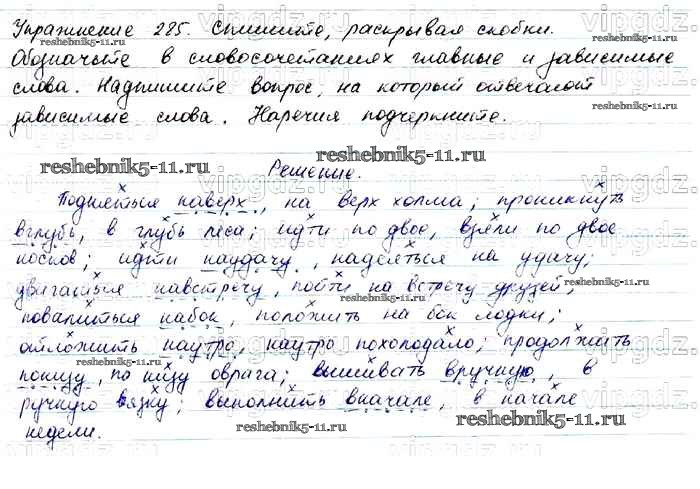 Упражнение 285. Спишите, раскрывая скобки.
Обозначьте в словосочетаниях главные и зависимые
слова. Надпишите вопрос, на который отвечают
зависимые слова. Наречия подчеркните.
reshebnik5-11.ru
reshebnik5-11.ru
Решение.
Подняться наверх, на верх холма; проникнуть
вглубь, в глубь леса; идти по двое, взяли по двое
носков; идти наудачу, надеяться на удачу;
двигаться навстречу, пойти на встречу друзей;
reshebnik5-11.ru
повалиться набок, положить на бок лодки;
отложить наутро, наутро похолодало; продолжить
reshebnik5-11.ru
понизу, по низу оврага; вышивать вручную, в
ручную вязку; выполнить вначале, в начале
reshebnik5-11.ru
недели.
reshebnik5-11.ru